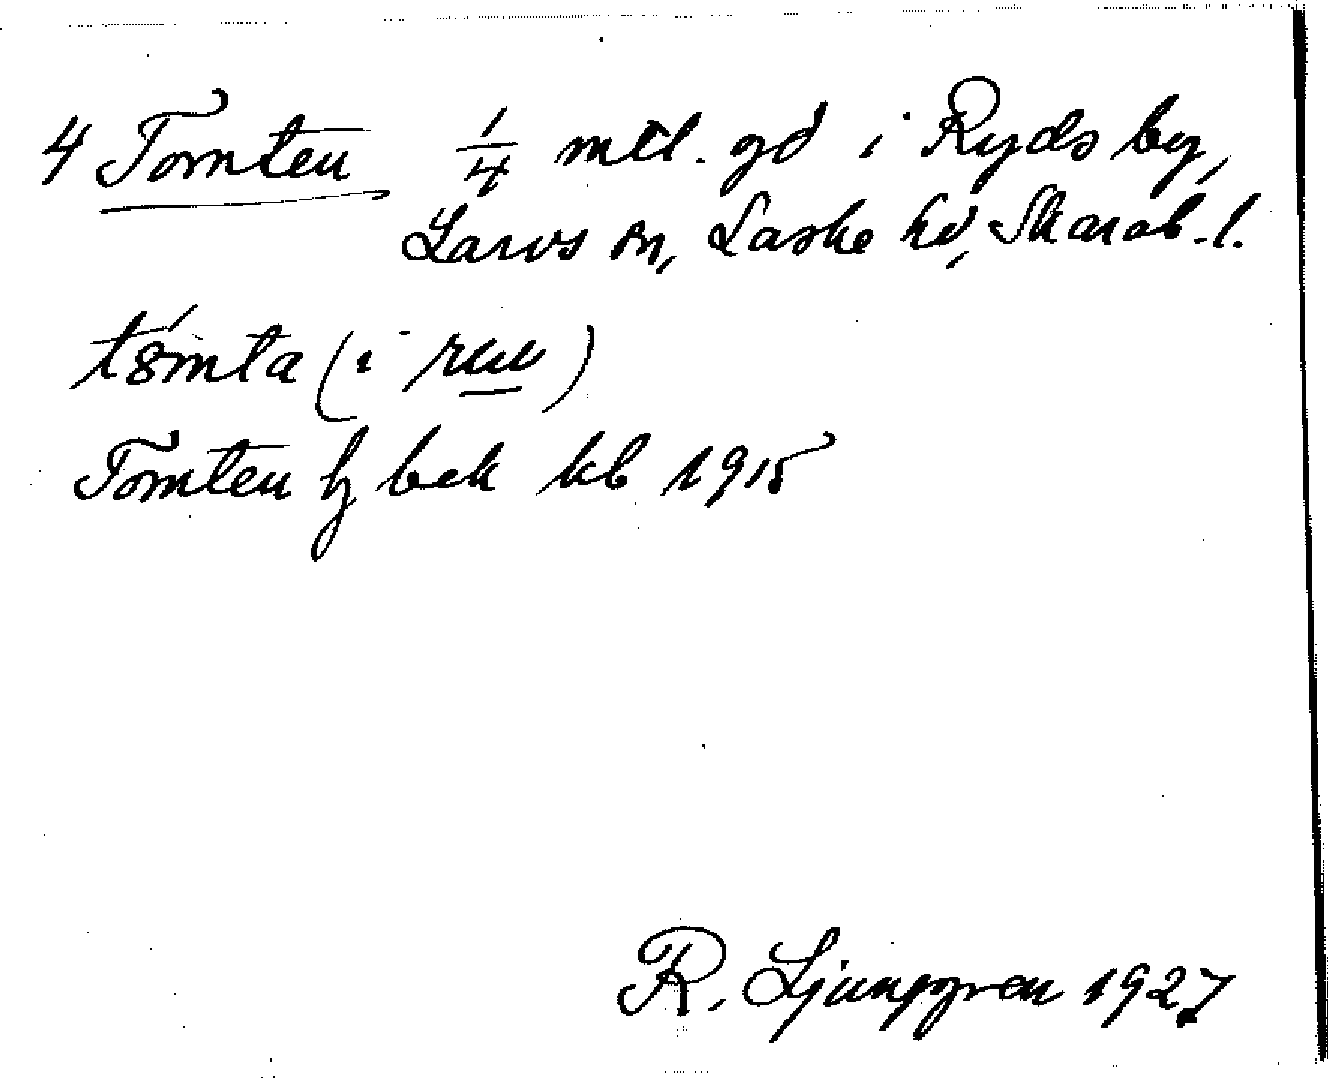 4 Tomten 1/4 mtl. gd i Ryds by,
Larvs sn, Laske hd, Skarab. l.
Tomten hz bek kb 1915
R. Ljunggren 1927